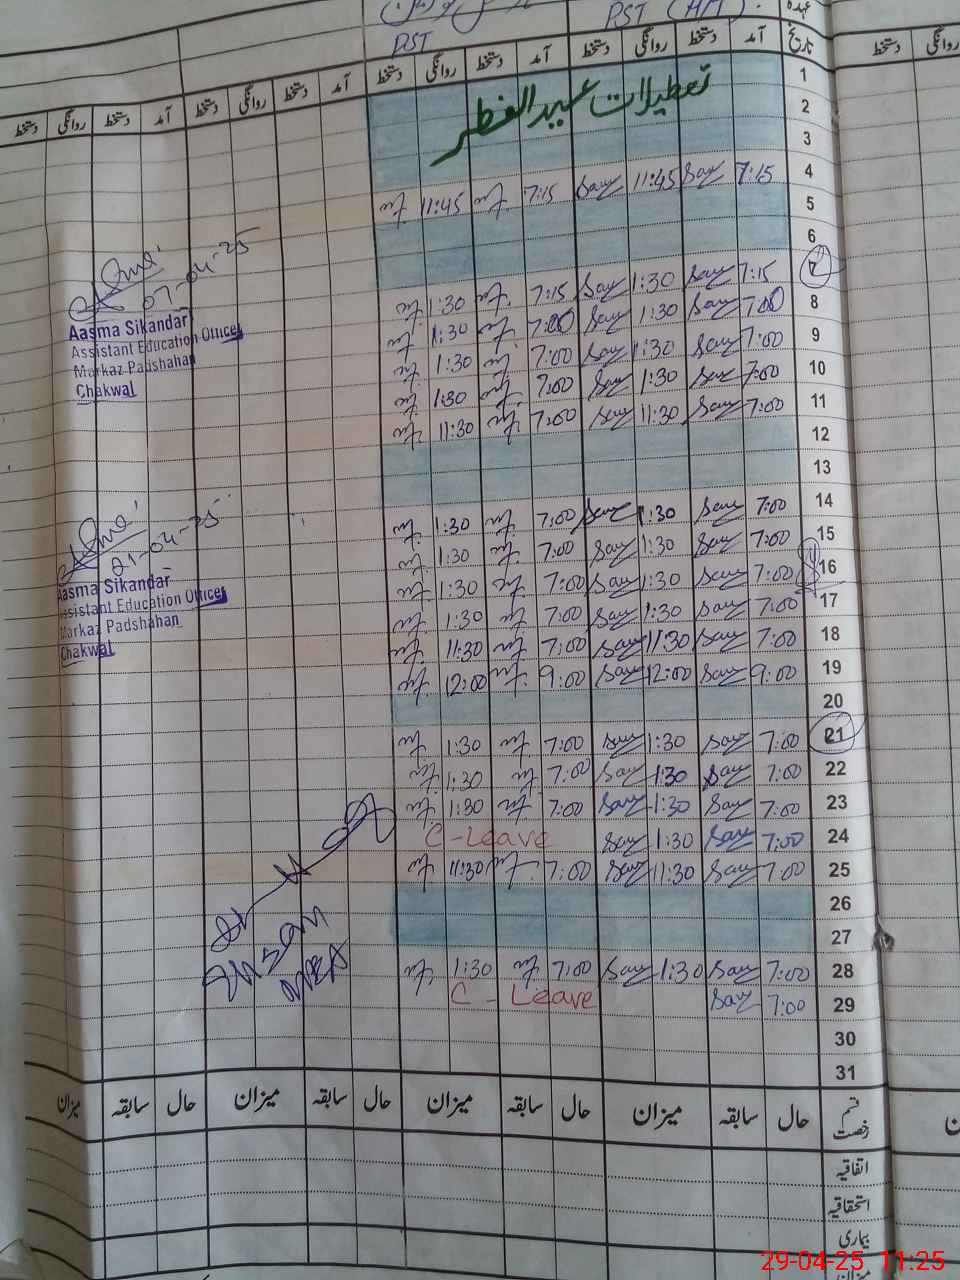 PST (HM)
PST
عہدہ
تاریخ آمد دستخط روانگی دستخط آمد دستخط روانگی دستخط آمد دستخط روانگی دستخط آمد دستخط روانگی دستخط
روانگی دستخط
1
تعطیلات عیدالفطر
2
3
4 7:15 Say 11:45 Say 7:15 11:45
5
6
7 7:15 Say 1:30 Say 7:15 1:30
8 7:00 Say 1:30 Say 7:00 1:30
9 7:00 Say 1:30 Say 7:00 1:30
10 7:00 Say 1:30 Say 7:00 1:30
11 7:00 Say 11:30 Say 7:00 11:30
12
13
14 7:00 Say 1:30 Say 7:00 1:30
15 7:00 Say 1:30 Say 7:00 1:30
16 7:00 Say 1:30 Say 7:00 1:30
17 7:00 Say 1:30 Say 7:00 1:30
18 7:00 Say 11:30 Say 7:00 11:30
19 9:00 Say 12:00 Say 9:00 12:00
20
21 7:00 Say 1:30 Say 7:00 1:30
22 7:00 Say 1:30 Say 7:00 1:30
23 7:00 Say 1:30 Say 7:00 1:30
24 7:00 Say 1:30 Say C-Leave
25 7:00 Say 11:30 Say 7:00 11:30
26
27
28 7:00 Say 1:30 Say 7:00 1:30
29 7:00 Say C - Leave
30
31
07-04-25
Aasma Sikandar
Assistant Education Officer
Markaz Padshahan
Chakwal
21-04-25
Aasma Sikandar
Assistant Education Officer
Markaz Padshahan
Chakwal
MEA
قسم رخصت حال سابقہ میزان حال سابقہ میزان حال سابقہ میزان حال سابقہ میزان
اتفاقیہ
استحقاقیہ
بیماری
میزان
29-04-25 11:25